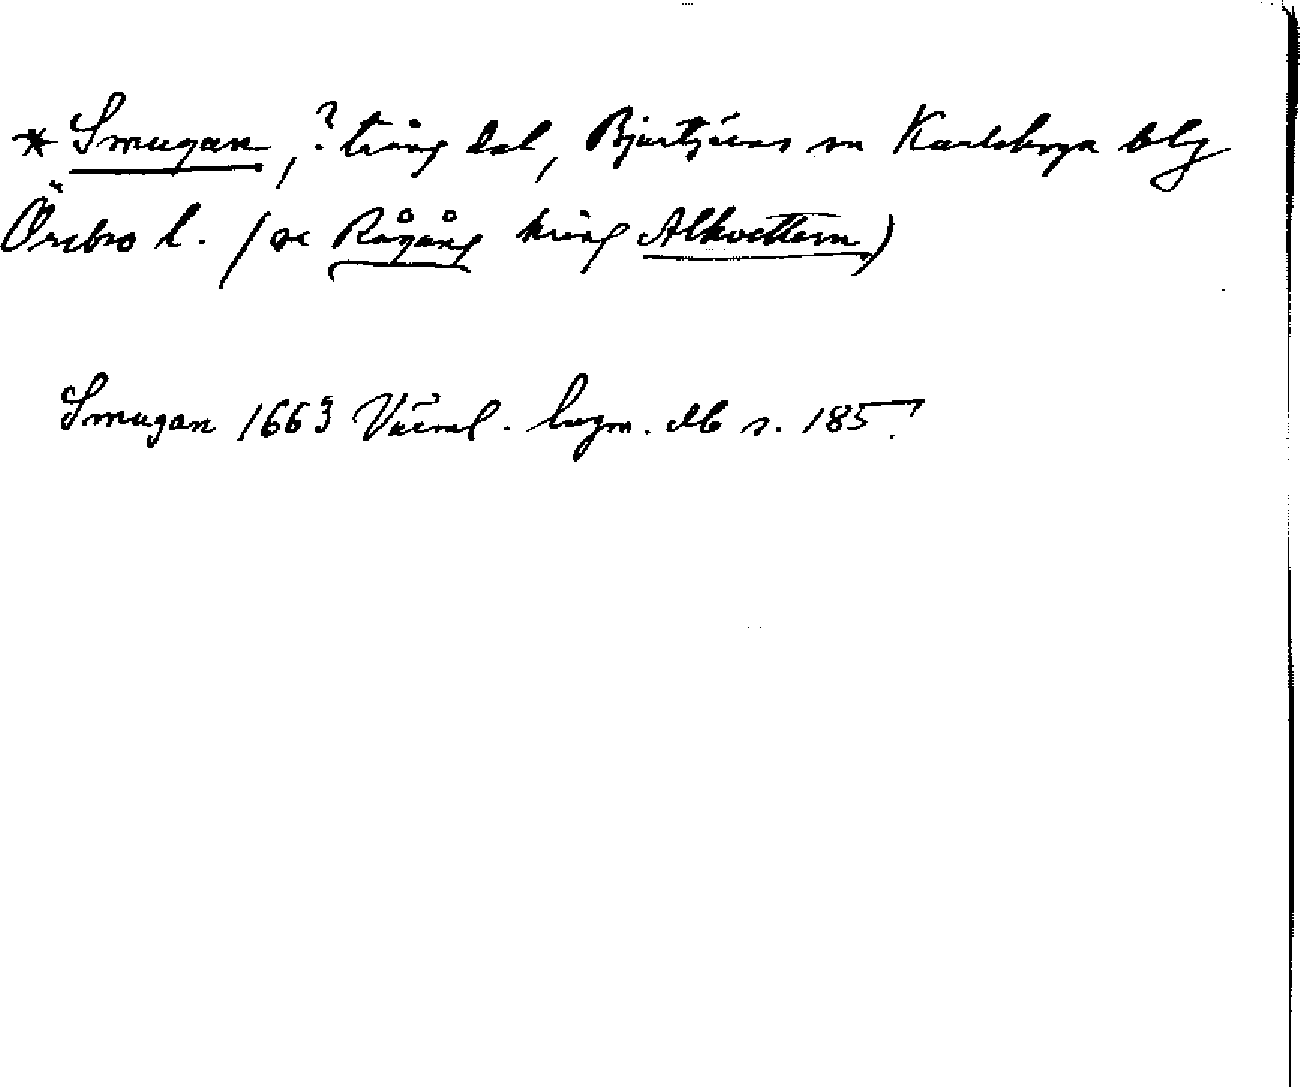 * Smugan, ? trång dal, Bjurtjärns sn Karlskoga blg
Örebro l. (se Rågång kring Alkvettern)
Smugan 1663 Värml. lagm. db s. 185.